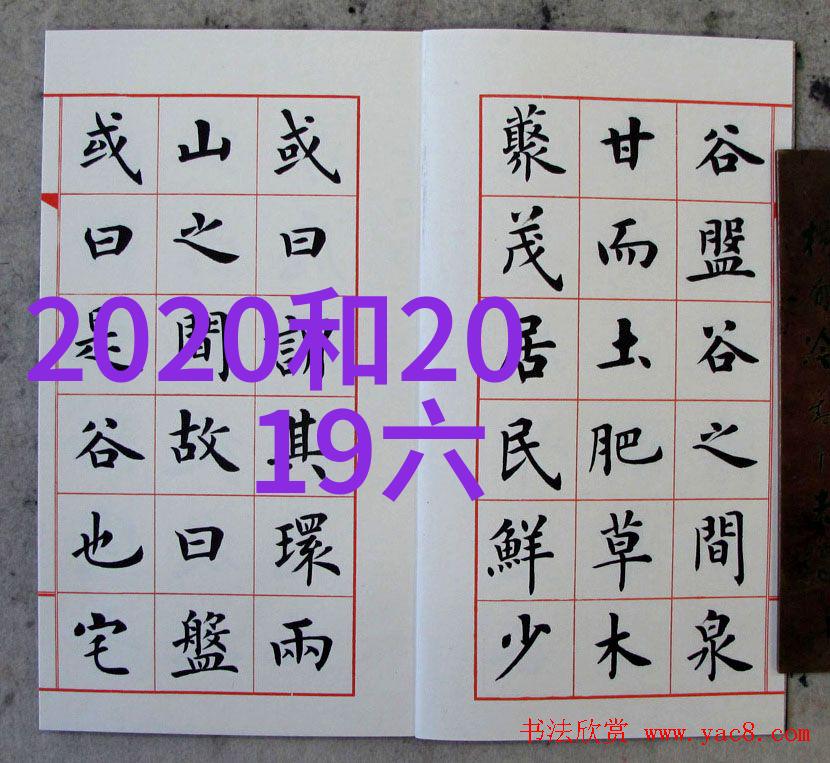 谷盤谷之間泉
甘而土肥草木
藂茂居民鮮少
或曰謂其環兩
山之間故曰盤
或曰是谷也宅
2020和20
19六
书法欣赏 www.yac8.com